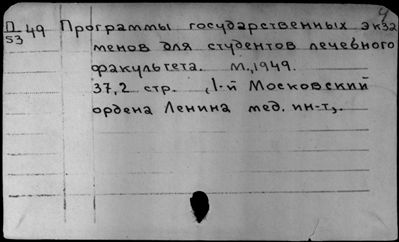 П/53 49 Программы государственных экза
менов для студентов лечебного
факультета. М., 1949.
37,2 стр. (1-й Московский
ордена Ленина мед. ин-т).